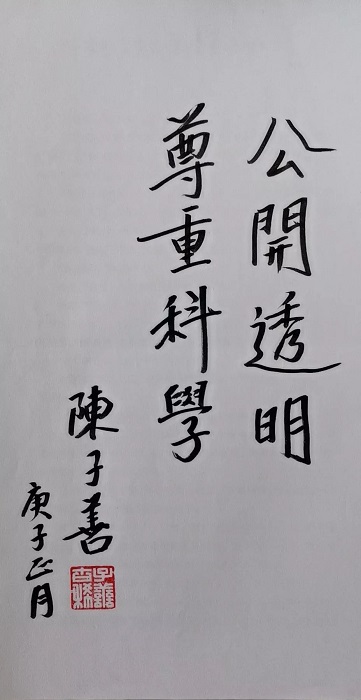 公開透明
尊重科學
陳子善
庚子正月